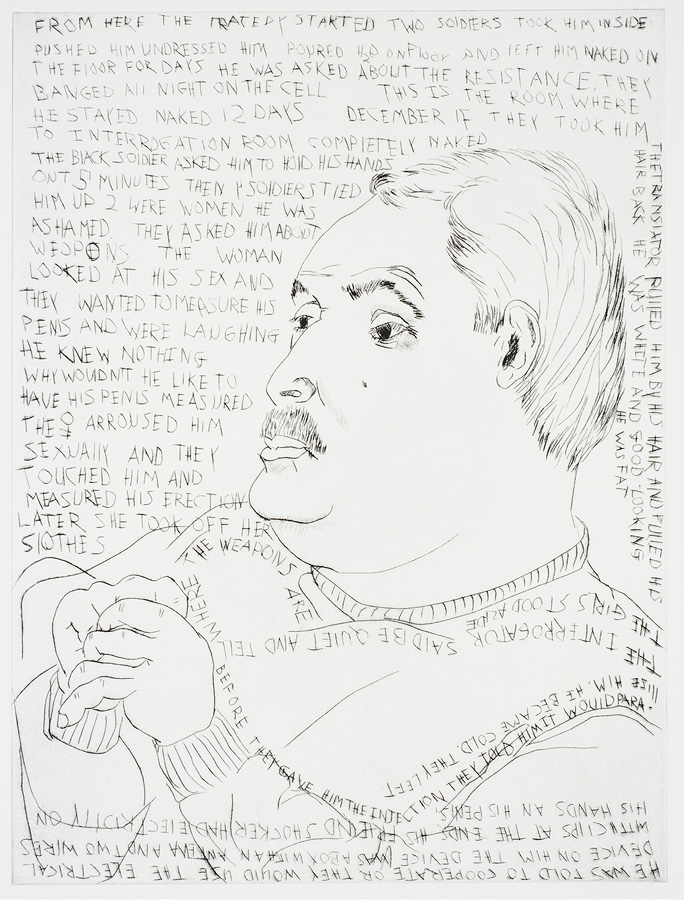 FROM HERE THE TRAGEDY STARTED TWO SOLDIERS TOOK HIM INSIDE
PUSHED HIM UNDRESSED HIM POURED H2O ON FLOOR AND LEFT HIM NAKED ON
THE FLOOR FOR DAYS HE WAS ASKED ABOUT THE RESISTANCE. THEY
BANGED All NIGHT ON THE CELL THIS IS THE ROOM WHERE
HE STAYED NAKED 12 DAYS DECEMBER IF THEY TOOK HIM
TO INTERROGATION ROOM COMPLETELY NAKED
THE BLACK SOLDIER ASKED HIM TO HOLD HIS HANDS
OUT 5 MINUTES THEN 4 SOLDIERS TIED
HIM UP 2 WERE WOMEN HE WAS
ASHAMED THEY ASKED HIM ABOUT
WEAPONS THE WOMAN
LOOKED AT HIS SEX AND
THEY WANTED TO MEASURE HIS
PENIS AND WERE LAUGHING
HE KNEW NOTHING
WHY WOULDNT HE LIKE TO
HAVE HIS PENIS MEASURED
THE ♀ ARROUSED HIM
SEXUALLY AND THEY
TOUCHED HIM AND
MEASURED HIS ERECTION
LATER SHE TOOK OFF HER
SLOTHES
THE TRANSLATOR PULLED HIM BY HIS HAIR AND PULLED HIS
HAIR BACK HE WAS WHITE AND GOOD-LOOKING
HE WAS FAT
THE GIRLS STOOD ASIDE
THE INTERROGATOR SAID BE QUIET AND TELL
WHERE THE WEAPONS ARE
BEFORE THEY GAVE HIM THE INJECTION THEY TOLD HIM IT WOULD PARA-
LIZE HIM. HE BECAME COLD. THEY LEFT
HE WAS TOLD TO COOPERATE OR THEY WOULD USE THE ELECTRICAL
DEVICE ON HIM THE DEVICE WAS A BOX WITH AN ANTENA AND TWO WIRES
WITH CLIPS AT THE ENDS HIS FRIEND SHOCKER HAD ELECTRICITY ON
HIS HANDS AN HIS PENIS.